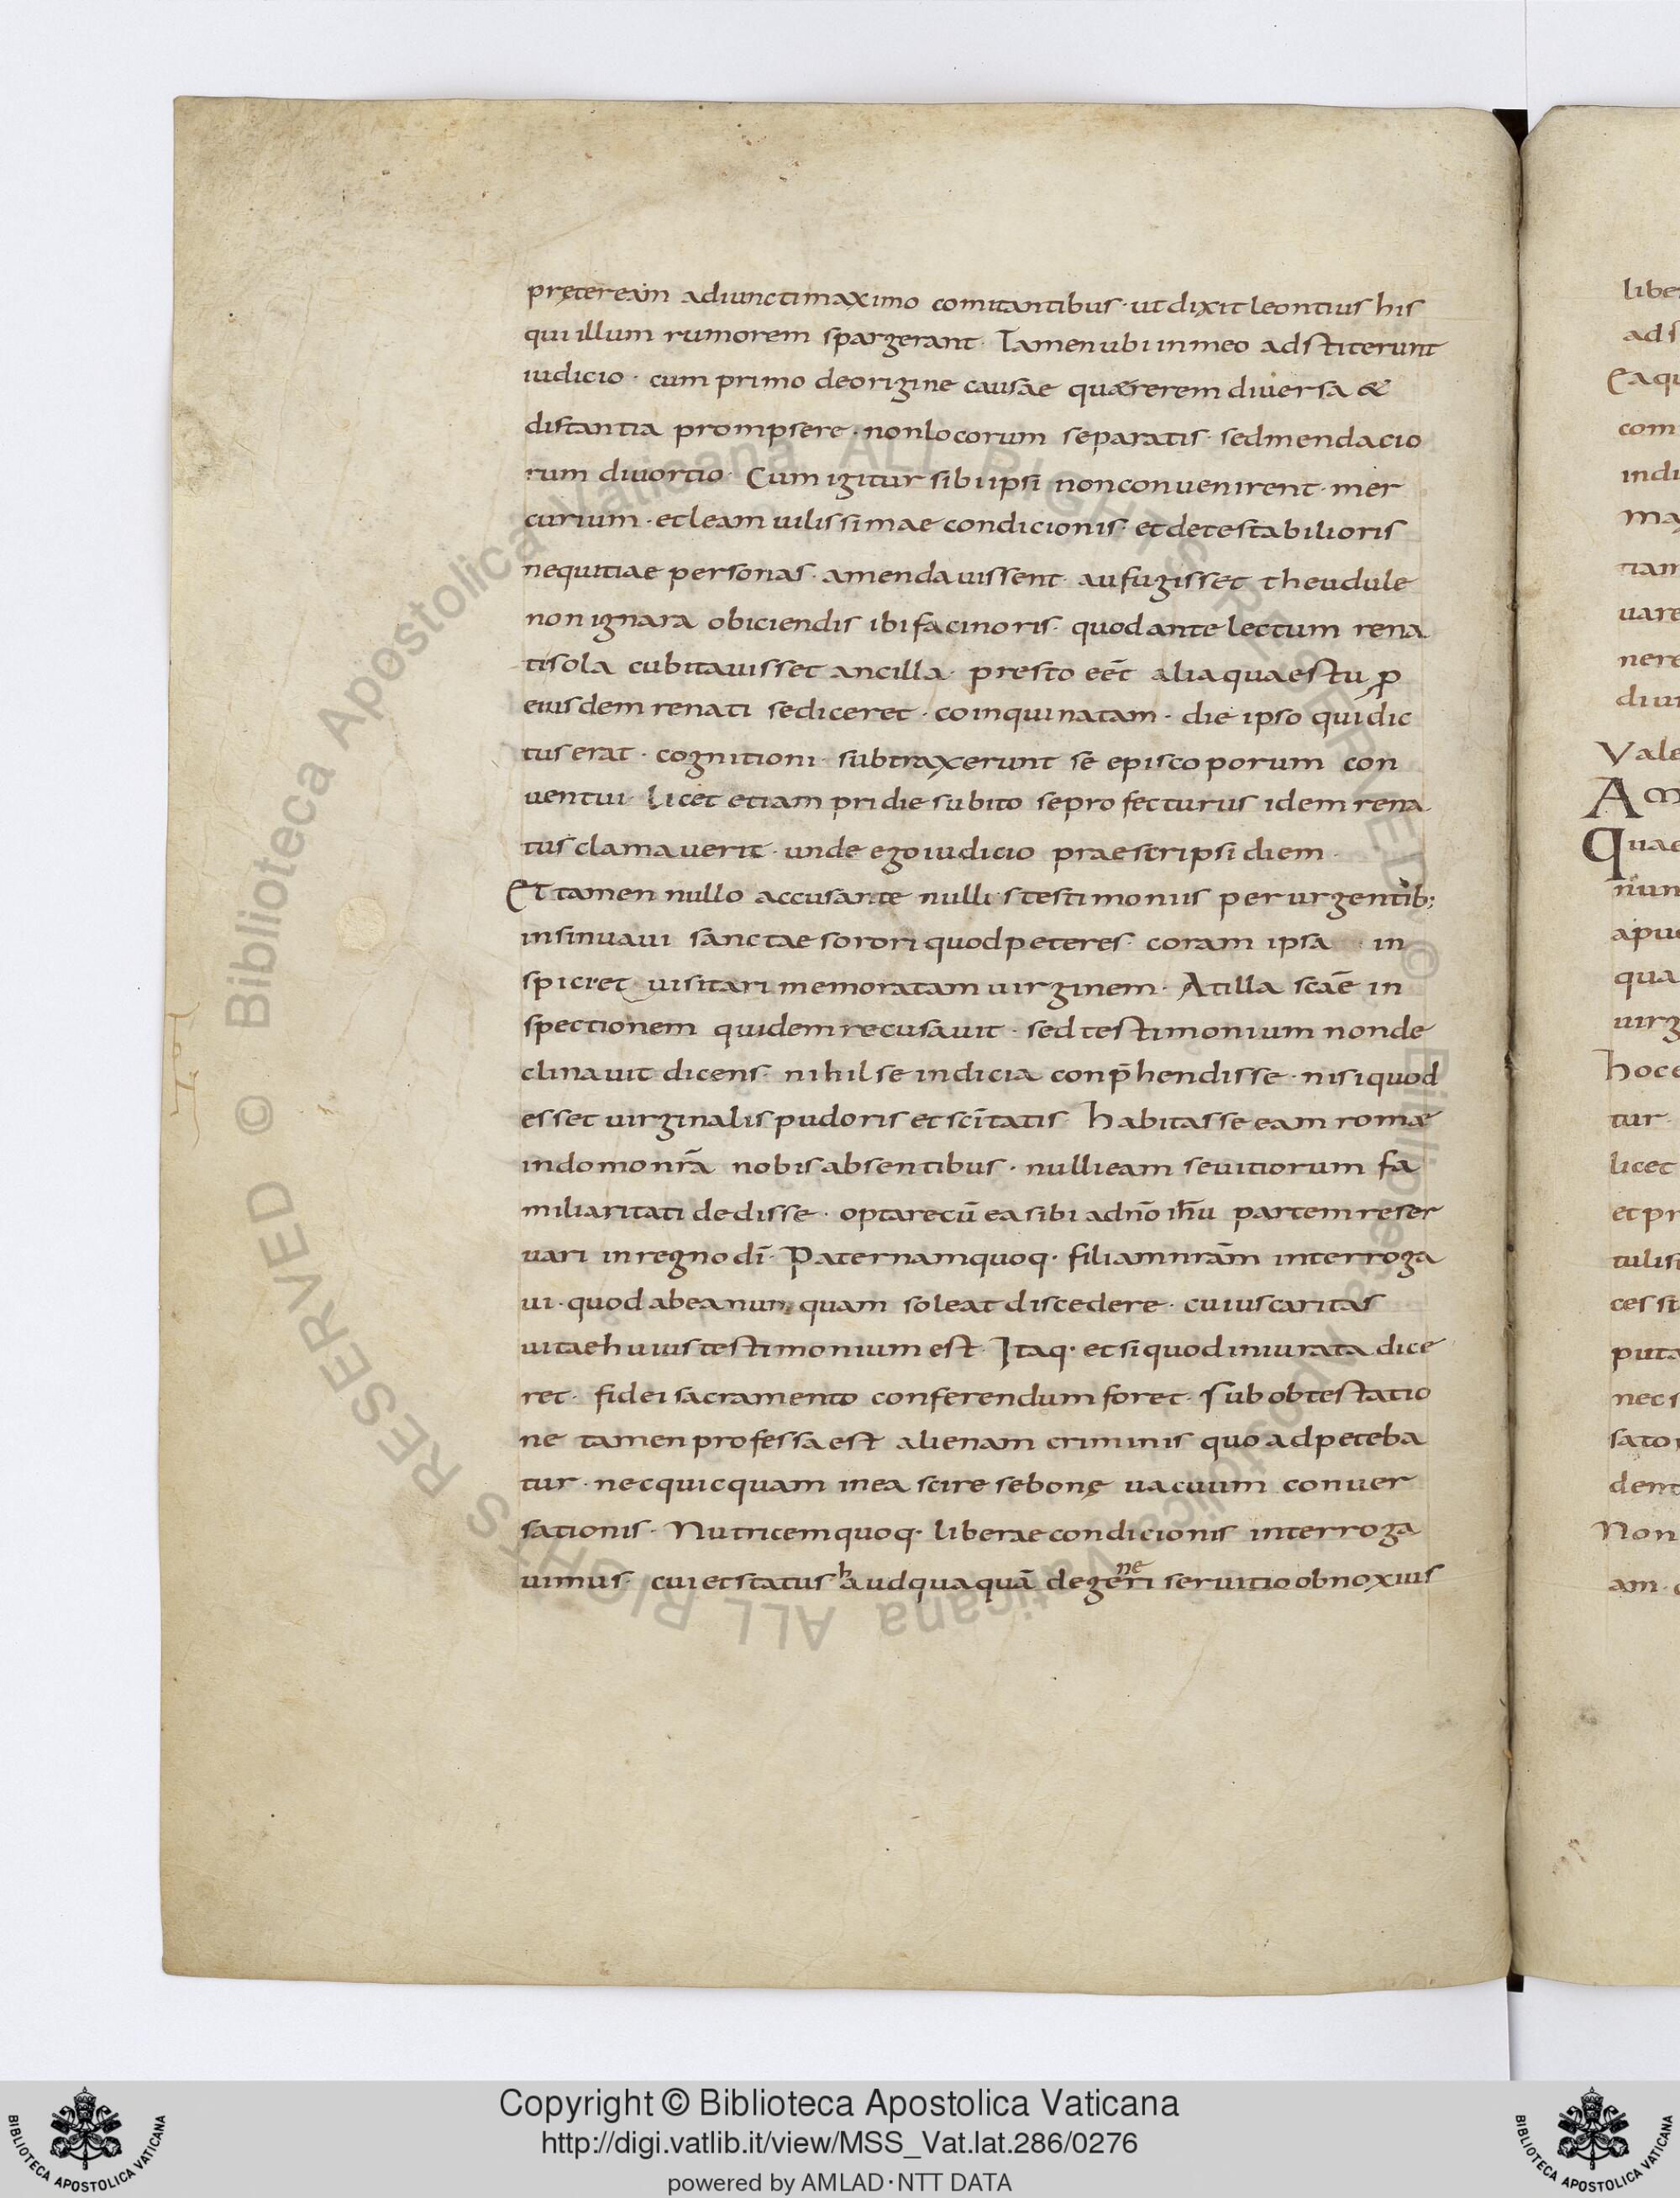 pręteream adiuncti maximo comitantibus · ut dixit leontius his
qui illum rumorem spargerant · Tamen ubi in meo adstiterunt
iudicio · cum primo de origine causae quaererem diuersa &
distantia prompsere · non locorum separatis · sed mendacio
rum diuortio · Cum igitur sibi ipsi non conuenirent · mer
curium · et leam uilissimae condicionis · et detestabilioris
nequitiae personas · amendauissent · aufugisset theudule
non ignara obiciendis ibi facinoris · quod ante lectum rena
ti sola cubitauisset ancilla · presto eēt alia quaestu p̱
eiusdem renati se diceret · coinquinatam · die ipso qui dic
tus erat · cognitioni · subtraxerunt se episcoporum con
uentui · licet etiam pridie subito se profecturus idem rena
tus clamauerit · unde ego iudicio praescripsi diem ·
Et tamen nullo accusante nullis testimoniis perurgentib;
insinuaui sanctae sorori quod peteres · coram ipsa · in
spicret · uisitari memoratam uirginem · Atilla scāe in
spectionem quidem recusauit · sed testimonium non de
clinauit dicens · nihil se indicia conp̄hendisse · nisi quod
esset uirginalis pudoris et scītatis · habitasse eam romae
in domo nr̄a nobis absentibus · nulli eam se uitiorum fa
miliaritati dedisse · optare cū ea sibi a dn̄o ih̄u partem reser
uari in regno dī · Paternam quoq· filiam nrām interroga
ui · quod ab ea nunquam soleat discedere · cuius caritas
uitae huius testimonium est · Itaq· et si quod iniurata dice
ret · fidei sacramento conferendum foret · sub obtestatio
ne tamen professa est alienam criminis quo adpeteba
tur · nec quicquam in ea scire se bonę uacuum conuer
sationis · Nutricem quoq· liberae condicionis interroga
uimus · cui et status haudquaquā degeneri seruitio obnoxius
libe
ad s
Ea qu
com
indi
ma
tiam
uare
nere
diui
Vale
Am
Quae
num
apud
qua
uirg
hoc e
tur
licet
et pr
tulis
ces st
puta
nec s
sato
dent
Non
am ·
Copyright © Biblioteca Apostolica Vaticana
http://digi.vatlib.it/view/MSS_Vat.lat.286/0276
powered by AMLAD · NTT DATA
BIBLIOTECA APOSTOLICA VATICANA
BIBLIOTECA APOSTOLICA VATICANA